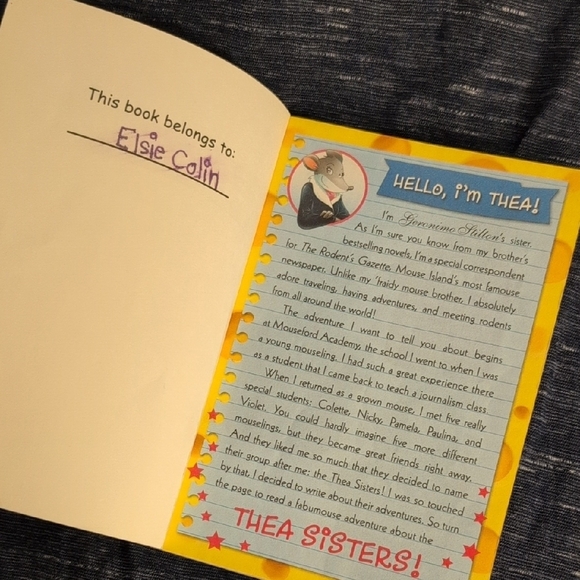 This book belongs to:
Elsie Colin
HELLO, i'm THEA!
I'm Geronimo Stilton's sister.
As I'm sure you know from my brother's
bestselling novels, I'm a special correspondent
for The Rodent's Gazette, Mouse Island's most famous
newspaper. Unlike my 'fraidy mouse brother, I absolutely
adore traveling, having adventures, and meeting rodents
from all around the world!
The adventure I want to tell you about begins
at Mouseford Academy, the school I went to when I was
a young mouseling. I had such a great experience there
as a student that I came back to teach a journalism class.
When I returned as a grown mouse, I met five really
special students: Colette, Nicky, Pamela, Paulina, and
Violet. You could hardly imagine five more different
mouselings, but they became great friends right away.
And they liked me so much that they decided to name
their group after me: the Thea Sisters! I was so touched
by that, I decided to write about their adventures. So turn
the page to read a fabumouse adventure about the
THEA SiSTERS!